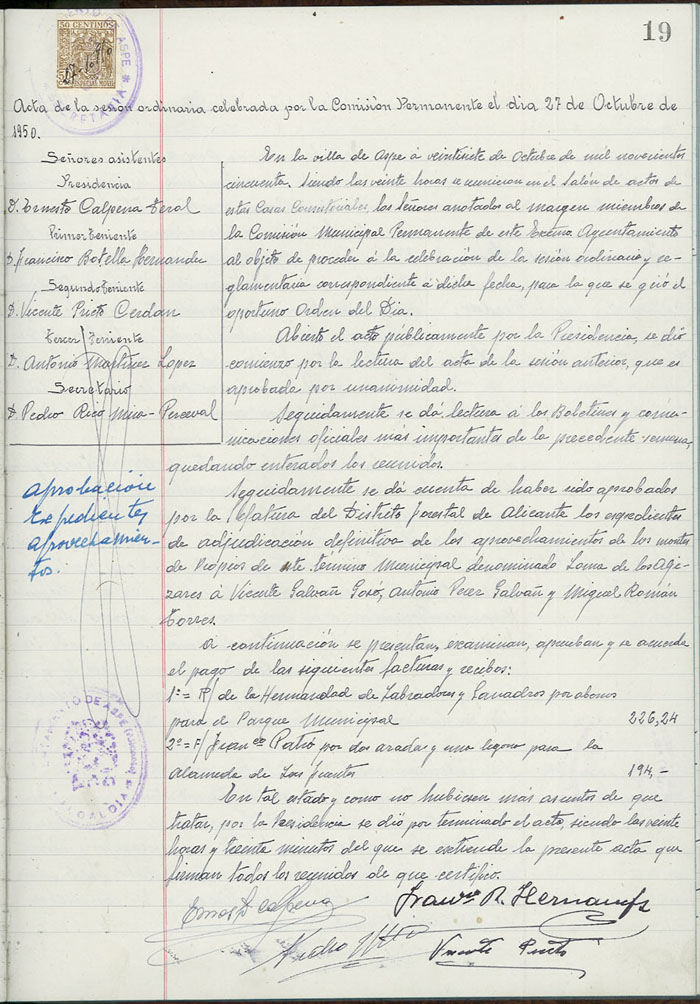 19
50 CENTIMOS
ESPECIAL MOVIL
27-10-950
SECRETARIA
Acta de la sesión ordinaria celebrada por la Comisión Permanente el dia 27 de Octubre de
1950.
Señores asistentes
Presidencia
D. Ernesto Calpena Teral
Primer Teniente
D. Francisco Botella Hernandez
Segundo Teniente
D. Vicente Prieto Cerdan
Tercer Teniente
D. Antonio Martinez Lopez
Secretario
D. Pedro Rico Mira-Perceval
En la villa de Aspe á veintisiete de Octubre de mil novecientos
cincuenta. Siendo las veinte horas se reunieron en el Salón de actos de
estas Casas Consistoriales, los Señores anotados al margen miembros de
la Comisión Municipal Permanente de este Excmo Ayuntamiento
al objeto de proceder á la celebración de la sesión ordinaria y re-
glamentaria correspondiente á dicha fecha, para la que se giró el
oportuno Orden del Dia.
Abierto el acto públicamente por la Presidencia, se dió
comienzo por la lectura del acta de la sesión anterior, que es
aprobada por unanimidad.
Seguidamente se dá lectura á los Boletines y comu-
nicaciones oficiales más importantes de la precedente semana,
quedando enterados los reunidos.
aprobación
Expedientes
aprovechamien-
tos.
Seguidamente se dá cuenta de haber sido aprobados
por la Jefatura del Distrito Forestal de Alicante los expedientes
de adjudicación definitiva de los aprovechamientos de los montes
de Propios de este término municipal denominado Loma de los Alge-
zares á Vicente Galvañ Gosó, Antonio Perez Galvañ y Miguel Román
Torres.
A continuación se presentan, examinan, aprueban y se acuerda
el pago de las siguientes facturas y recibos:
1º = R/ de la Hermandad de Labradores y Ganadros por abonos
para el Parque Municipal 226,24
2º = F/ Franco Patró por dos aradas y una legona para la
Alameda de Las Fuentes 194,-
En tal estado y como no hubiesen más asuntos de que
tratar, por la Presidencia se dió por terminado el acto, siendo las veinte
horas y treinta minutos del que se extiende la presente acta que
firman todos los reunidos de que certifico.
Ernesto Calpena
Pedro
Vicente Prieto